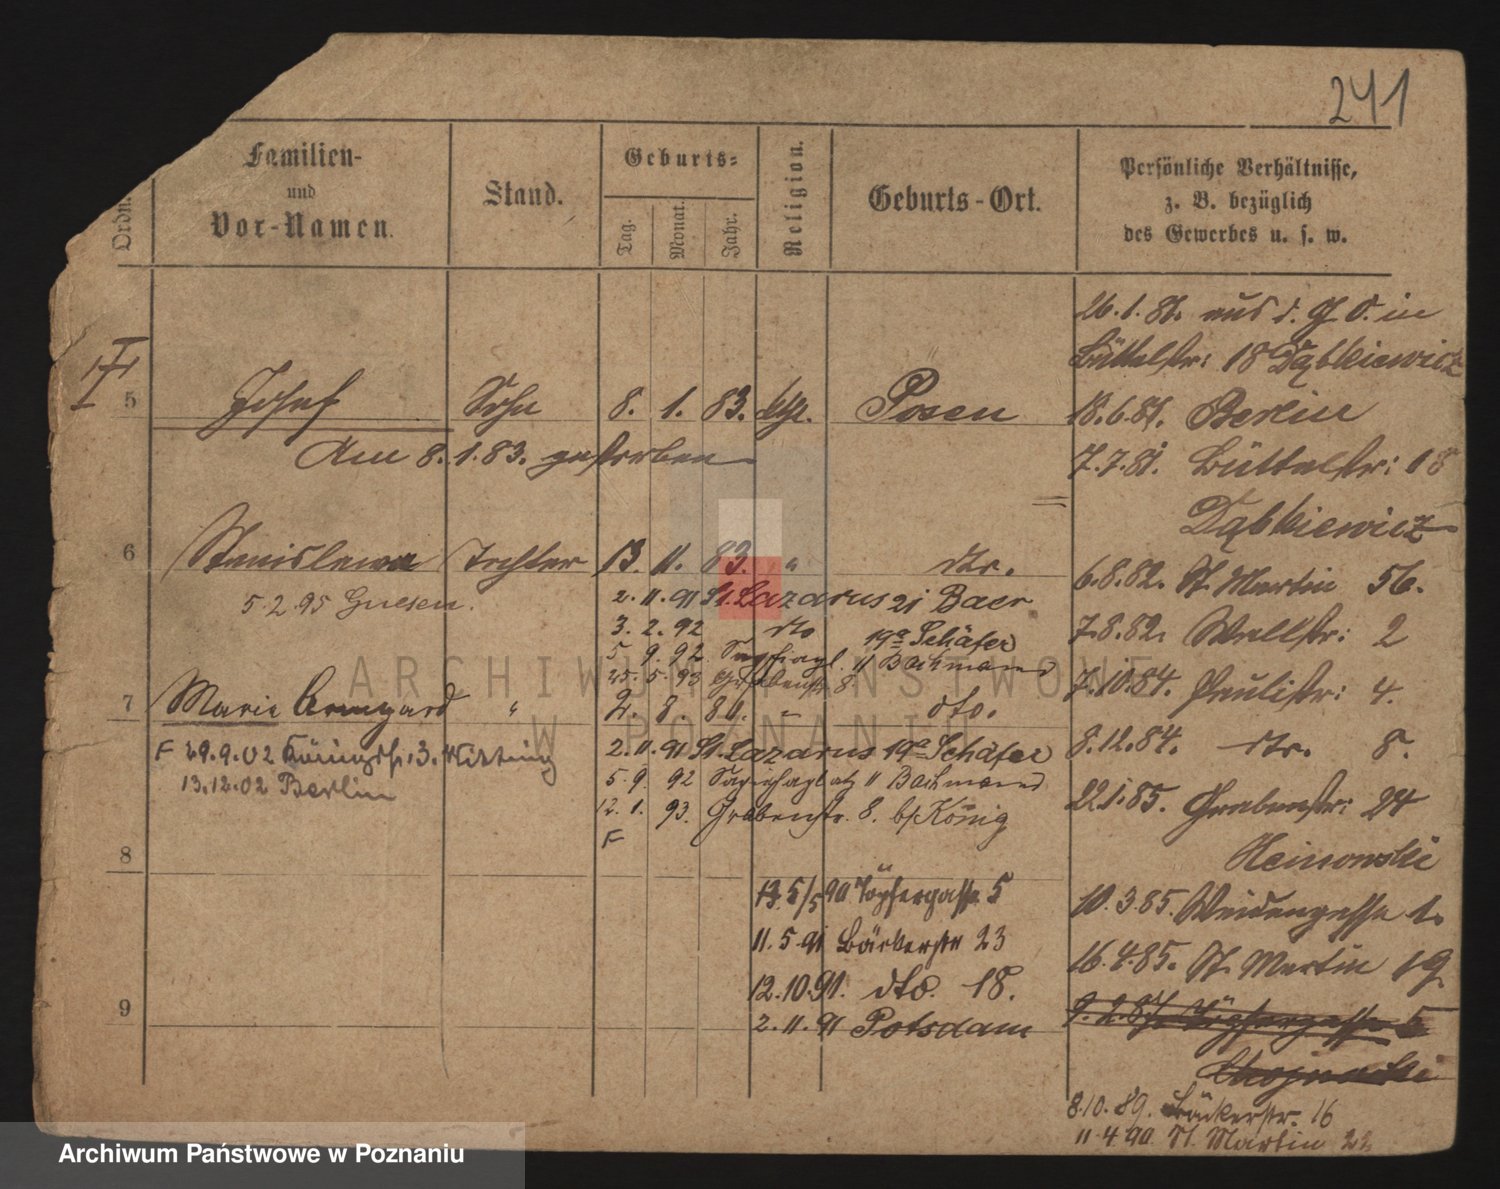 241
Ordn.
Familien-
und
Vor-Namen.
Stand.
Geburts-
Tag.
Monat.
Jahr.
Religion.
Geburts-Ort.
Persönliche Verhältnisse,
z. B. bezüglich
des Gewerbes u. s. w.
5 Josef Sohn 8. 1. 83. Posen
Am 8.1.83. gestorben
6 Stanislewa Tochter 13. 11. 83. " dto.
5.2.95 Gnesen.
2. 11. 91 St. Lazarus 21 Baer
3. 2. 92 dto 19a Schäfer
5. 9. 92 11 Bachmann
25. 5. 93 Grabenstr. 8
7 Marie " 2. 8. 80. " dto.
F 29.9.02
13.12.02 Berlin
2. 11. 91 St. Lazarus 19a Schäfer
5. 9. 92 Sapiehaplatz 11 Bachmann
12. 1. 93. Grabenstr. 8. b/König
F
8
13 5/5 90 Töpfergasse 5
11. 5. 91 Bäckerstr 23
12. 10. 91. dto. 18.
9
2. 11. 91 Potsdam
26. 1. 81. aus d. in
Büttelstr: 18 Dąbkiewicz
18. 6. 81. Berlin
7. 7. 81. Büttelstr: 18
Dąbkiewicz
6. 8. 82. St. Martin 56.
7. 8. 82. Wallstr: 2
7. 10. 84. Paulistr: 4.
8. 12. 84. dto. 8.
22. 1. 85. Grabenstr: 24
10. 3. 85. Weidengasse 1.
16. 4. 85. St. Martin 19
Töpfergasse 5
8. 10. 89. Bäckerstr. 16
11. 4. 90 St. Martin 22
ARCHIWUM PAŃSTWOWE
W POZNANIU
Archiwum Państwowe w Poznaniu